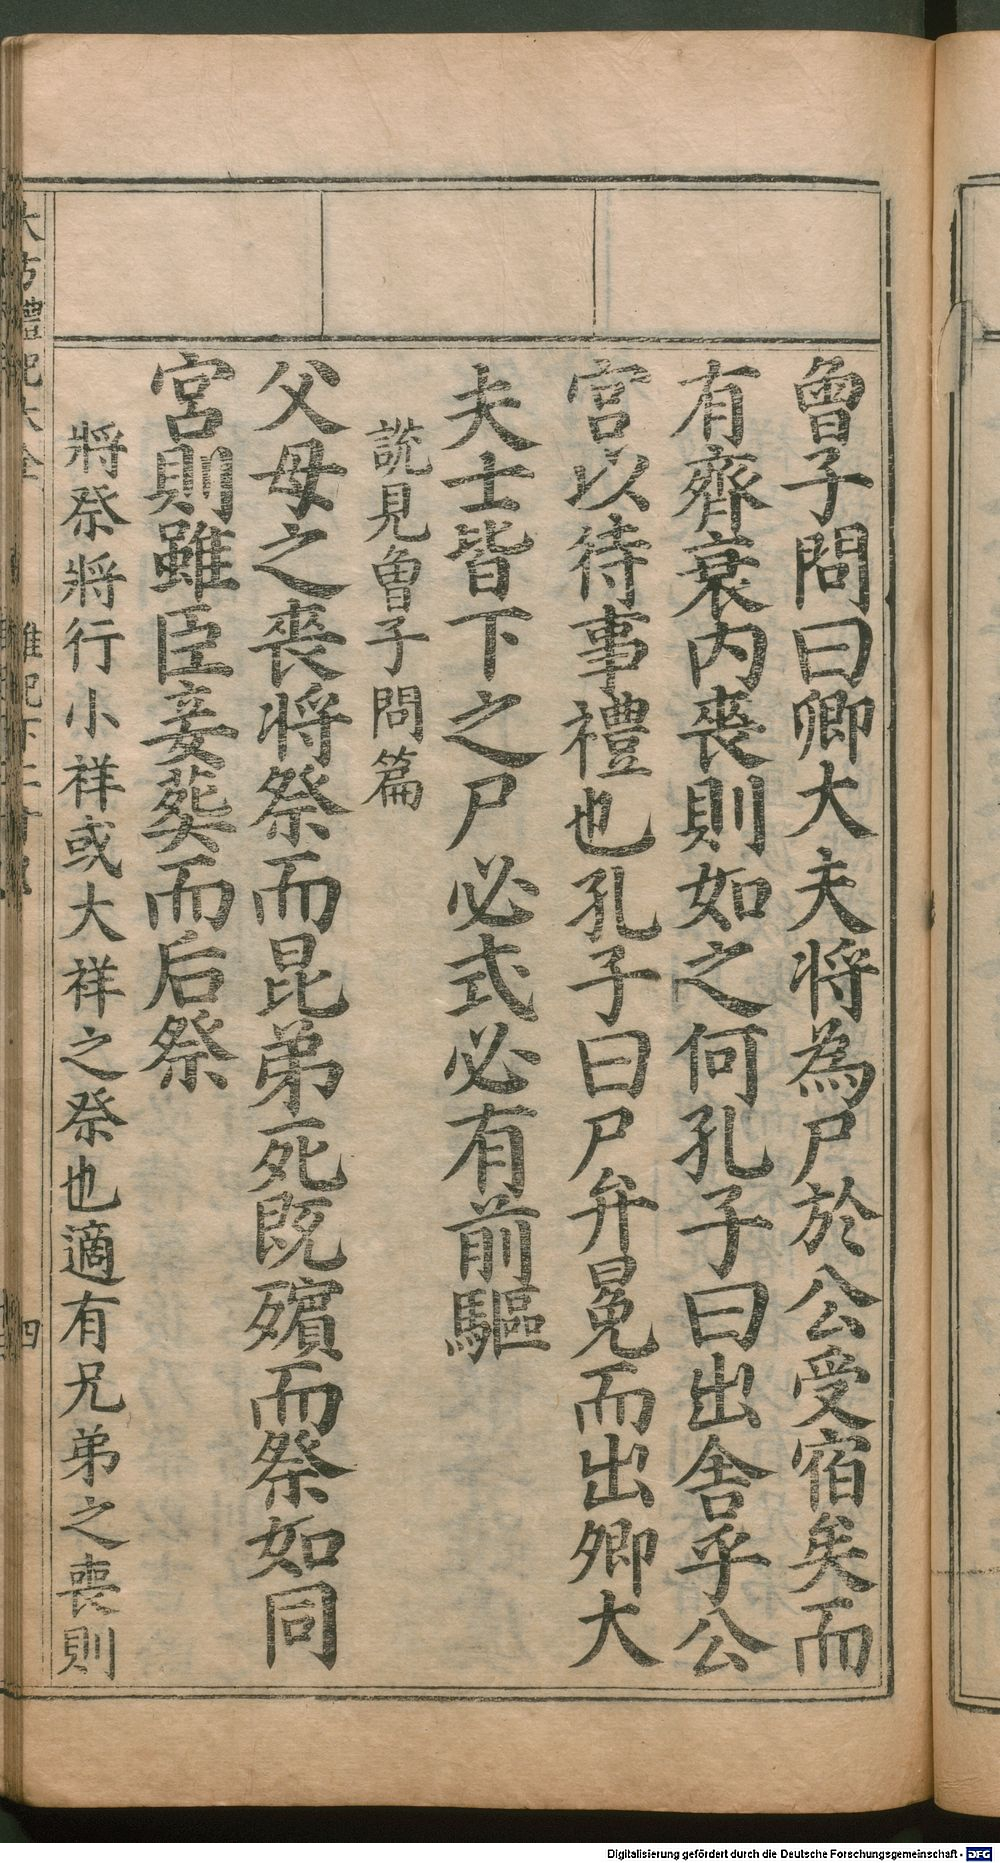 曾子問曰卿大夫将為尸於公受宿矣而
有齊衰内喪則如之何孔子曰出舍乎公
宮以待事禮也孔子曰尸弁冕而出卿大
夫士皆下之尸必式必有前驅
說見曾子問篇
父母之喪将祭而昆弟死既殯而祭如同
宮則雖臣妾葬而后祭
將祭將行小祥或大祥之祭也適有兄弟之喪則
四
Digitalisierung gefördert durch die Deutsche Forschungsgemeinschaft - DFG